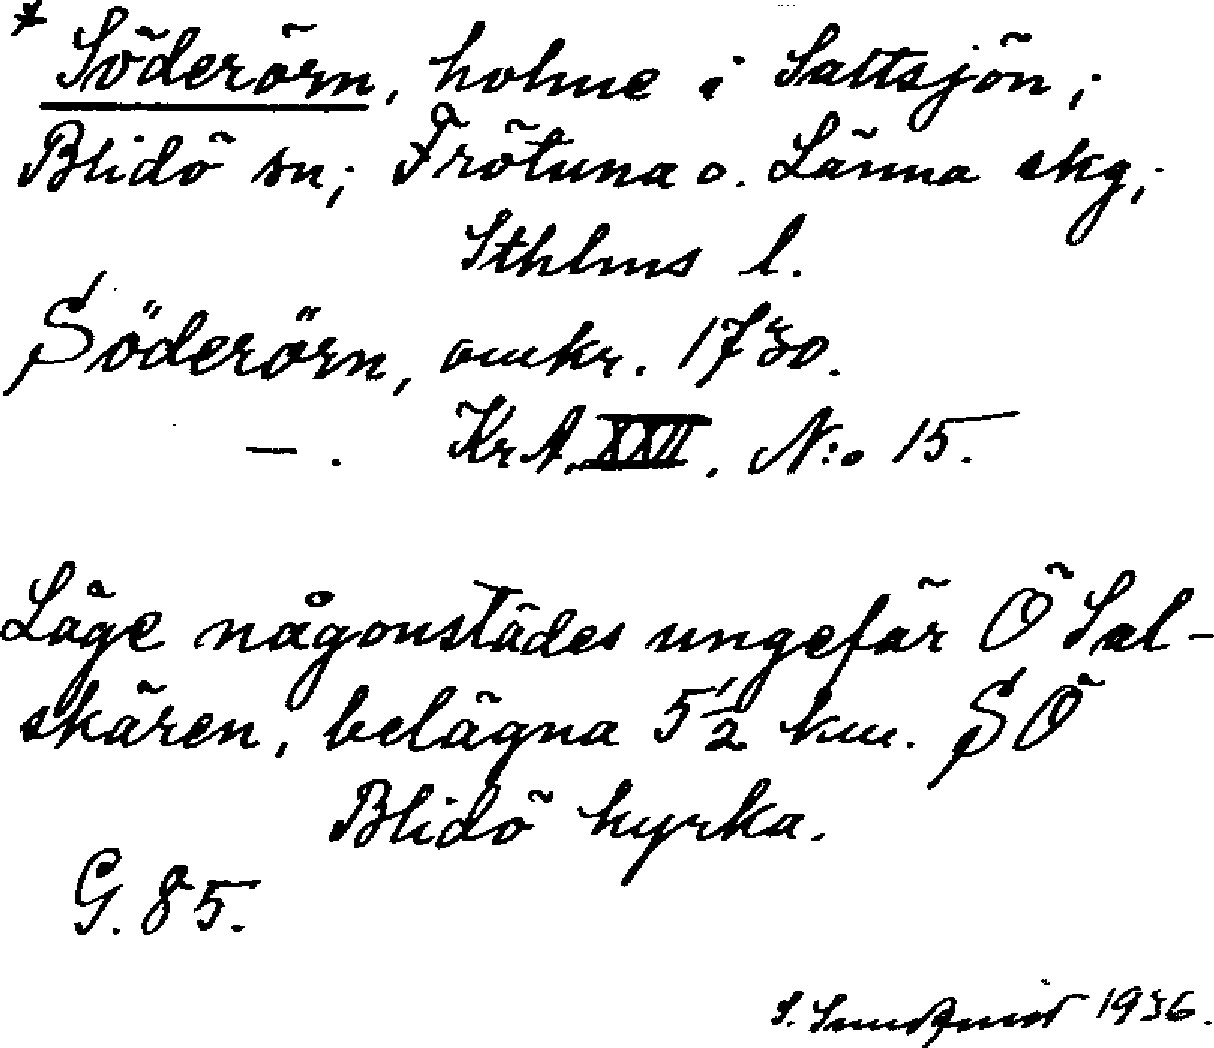 * Söderörn, holme i Saltsjön;
Blidö sn; Frötuna o. Länna skg,
Sthlms l.
Söderörn, omkr. 1730.
— . KrA. XXII. N:o 15.
Läge någonstädes ungefär Ö Sal-
skären, belägna 5½ km. SÖ
Blidö kyrka.
G. 85.
S. 1936.